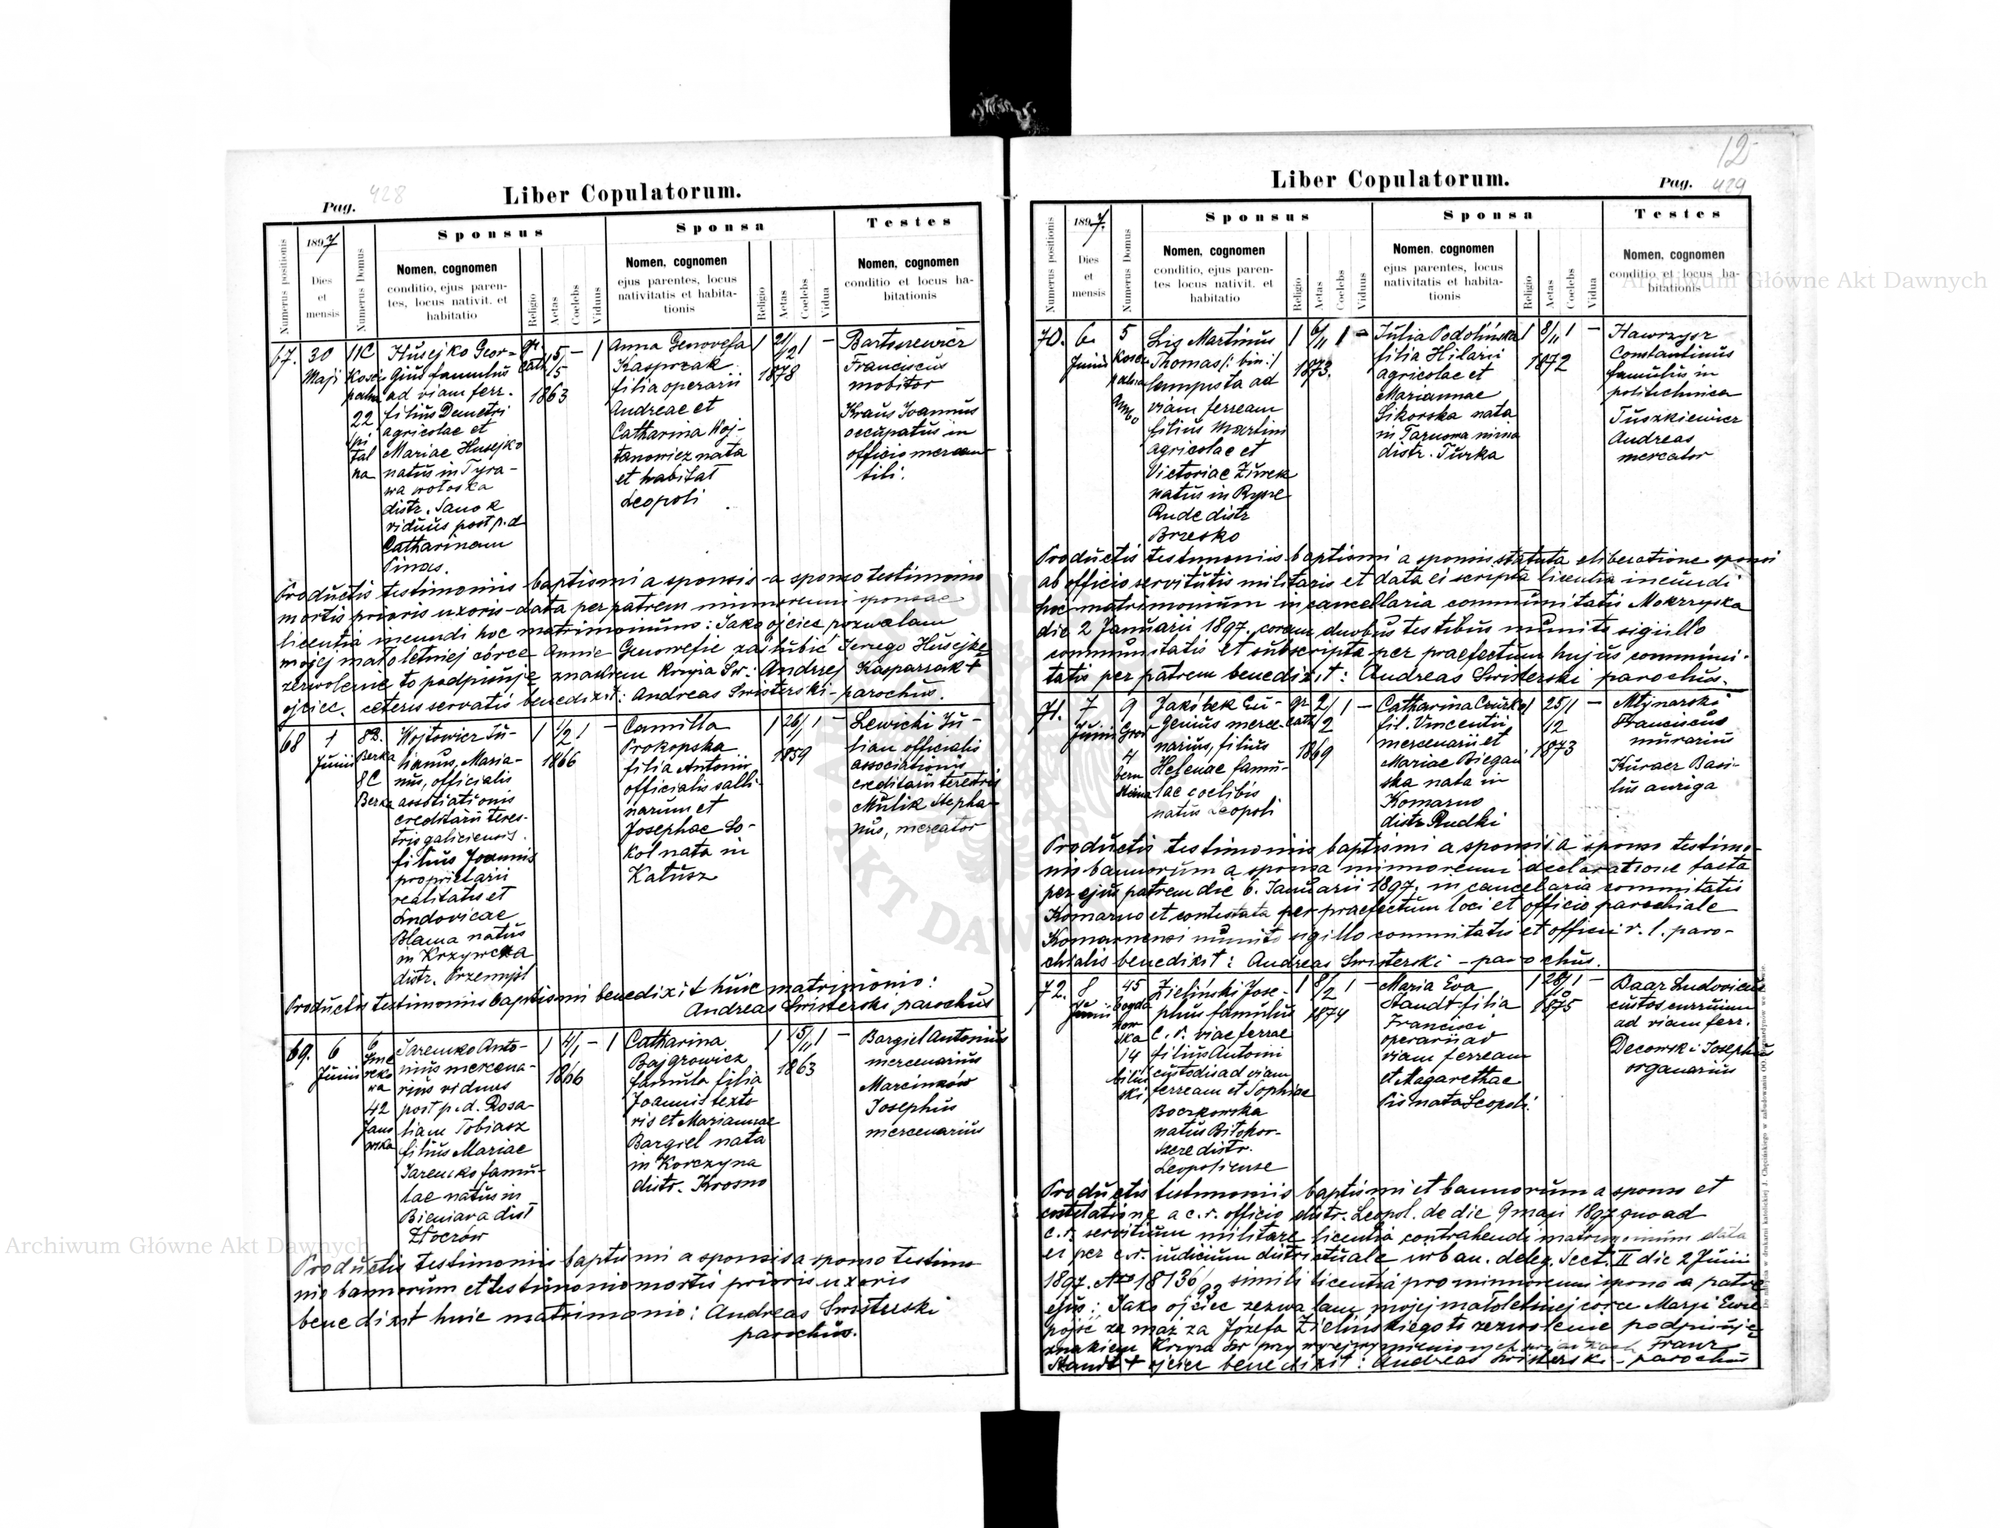 12
Pag. 428
Liber Copulatorum.
Numerus positionis
1897
Dies
et
mensis
Numerus Domus
Sponsus
Nomen, cognomen
conditio, ejus paren-
tes, locus nativit. et
habitatio
Religio
Aetas
Coelebs
Viduus
Sponsa
Nomen, cognomen
ejus parentes, locus
nativitatis et habita-
tionis
Religio
Aetas
Coelebs
Vidua
Testes
Nomen, cognomen
conditio et locus ha-
bitationis
67.
30
Maji
11C
22
Husejko Geor-
gius famulus
ad viam ferr.
filius Demetri
agricolae et
Mariae Husejko
natus in Tyra-
wa wołoska
distr. Sanok
viduus post p.d
Catharinam
gr.
cath
15/5
1863
– 1
Anna Genovefa
Kasprzak
filia operarii
Andreae et
Catharina Woj-
tanowicz nata
et habitat
Leopoli
1
21/12
1878
1 –
Bartoszewicz
Franciscus
mobitor
Kraus Joannus
occupatus in
officio mercan-
tili.
Productis testimoniis baptismi a sponsis – a sponso testimonio
mortis prioris uxoris – data per patrem minorenni sponsae
licentia ineundi hoc matrimonium: Jako ojciec pozwalam
mojej małoletniej córce Annie Genowefie zaślubić Jerzego Husejkę
zezwolenie to podpisuję znakiem krzyża Sw: Andrzej Kasparzak +
ojciec. ceteris servatis benedixit: Andreas Swisterski – parochus.
68
1
Junii
8B.
Berka
8C
Berka
Wojtowicz Ju-
lianus, Maria-
nus, officialis
associationis
creditarii teres-
tris galiciensis.
filius Joannis
proprietarii
realitatis et
Ludovicae
Blama natus
in Krzywcza
distr. Przemyśl
1
1/2
1866
1 –
Camilla
Prokopska
filia Antonii
officialis salli-
narum et
Josephae So-
kol nata in
Kałusz
1
26/1
1859
1 –
Lewicki Ju-
lian officialis
associationis
creditarii terestris
Mulik Stepha-
nus, mercator
Productis testimoniis baptismi benedixit huic matrimonio:
Andreas Swisterski parochus
69.
6
Junii
6
42
Janowska
Jaremko Anto-
nius mercena-
rius viduus
post p.d. Rosa-
liam Tobiasz
filius Mariae
Jaremko famu-
lae natus in
Bieniawa dist
Złoczów
1
4/1
1866
– 1
Catharina
Bajgrowicz
famula filia
Joannis texto
ris et Mariannae
Bargiel nata
in Korczyna
distr. Krosno
1
15/11
1863
1 –
Bargiel Antonius
mercenarius
Marcinków
Josephus
mercenarius
Productis testimoniis baptismi a sponsis a sponso testimo
nio bannorum et testimonio mortis prioris uxoris
benedixit huic matrimonio: Andreas Swisterski
parochus.
Liber Copulatorum.
Pag. 429
Numerus positionis
1897.
Dies
et
mensis
Numerus Domus
Sponsus
Nomen, cognomen
conditio, ejus paren-
tes locus nativit. et
habitatio
Religio
Aetas
Coelebs
Viduus
Sponsa
Nomen, cognomen
ejus parentes, locus
nativitatis et habita-
tionis
Religio
Aetas
Coelebs
Vidua
Testes
Nomen, cognomen
conditio, et locus ha-
bitationis
70.
6.
Junii
5
Lis Martinus
Thomas /: bin :/
lampista ad
viam ferream
filius Martini
agricolae et
Victoriae Żurek
natus in
Rude distr
Brzesko
1
6/11
1873.
1 –
Julia Podolińska
filia Hilarii
agricolae et
Mariannae
Sikorska nata
in Tarnawa niżna
distr. Turka
1
8/11
1872
1 –
Constantinus
famulus in
politechnica
Tuszkiewicz
Andreas
mercator
Productis testimoniis baptismi a sponsis statuta et liberatione sponsi
ab officio servitutis militaris et data ei scripta licentia ineundi
hoc matrimonium in cancellaria communitatis Mokrzyska
die 2 Januarii 1897. coram duobus testibus munito sigillo
communitatis et subscripta per praefectum hujus communi-
tatis per patrem benedixit: Andreas Swisterski parochus.
71.
7
Junii
9
4
Jakóbek Eu-
genius merce-
narius, filius
Helenae famu-
lae coelibis
natus Leopoli
gr
cath
2/2
1869
1 –
Catharina Czurko
fil. Vincentii
mercenarii et
Mariae Biegań
ska nata in
Komarno
distr. Rudki
1
25/12
1873
1 –
Młynarski
Franciscus
murarius
Kuracz Basi-
lius auriga
Productis testimoniis baptismi a sponsis a sponso testimo-
niis bannorum a sponsa minorenni declaratione facta
per ejus patrem die 6. Januarii 1897. in cancelaria commitatis
Komarno et contestata per praefectum loci et officio parochiale
Komarnensi munito sigillo commitatis et officii r. l. paro-
chialis benedixit: Andreas Swisterski – parochus.
72.
8
Junii
45
Bogda
now
ska
14
biliń
ski
Zieliński Jose-
phus famulus
c. r. viae ferrae
filius Antonii
custodis ad viam
ferream et Sophiae
Boczkowska
natus Biłohor-
szcze distr.
Leopoliense
1
8/2
1874
1 –
Maria Eva
Standt filia
Francisci
operarii ad
viam ferream
et Magarethae
Pis nata Leopoli.
1
28/10
1875
1 –
Baar Ludovicus
custos curruum
ad viam ferr.
Decowski Josephus
organarius
Productis testimoniis baptismi et bannorum a sponso et
contestatione a c. r. officio distr. Leopol. de die 9 maji 1897 quoad
c. r. servitium militare licentia contrahendi matrimonium data
ei per c. r. iudicium districtuale urban. deleg. Sect. II die 2 Junii
1897. Nro 18136/93 simili licentia pro minorenni sponso a patre
ejus: Jako ojciec zezwalam mojej małoletniej córce Maryi Ewie
pójść za mąż za Józefa Zielińskiego to zezwolenie podpisuję
znakiem Krzyża Sw przy wyrejzwymienionych świadkach Franz
Standt + ojciec benedixit: Andreas Swisterski – parochus
Archiwum Główne Akt Dawnych
Archiwum Główne Akt Dawnych